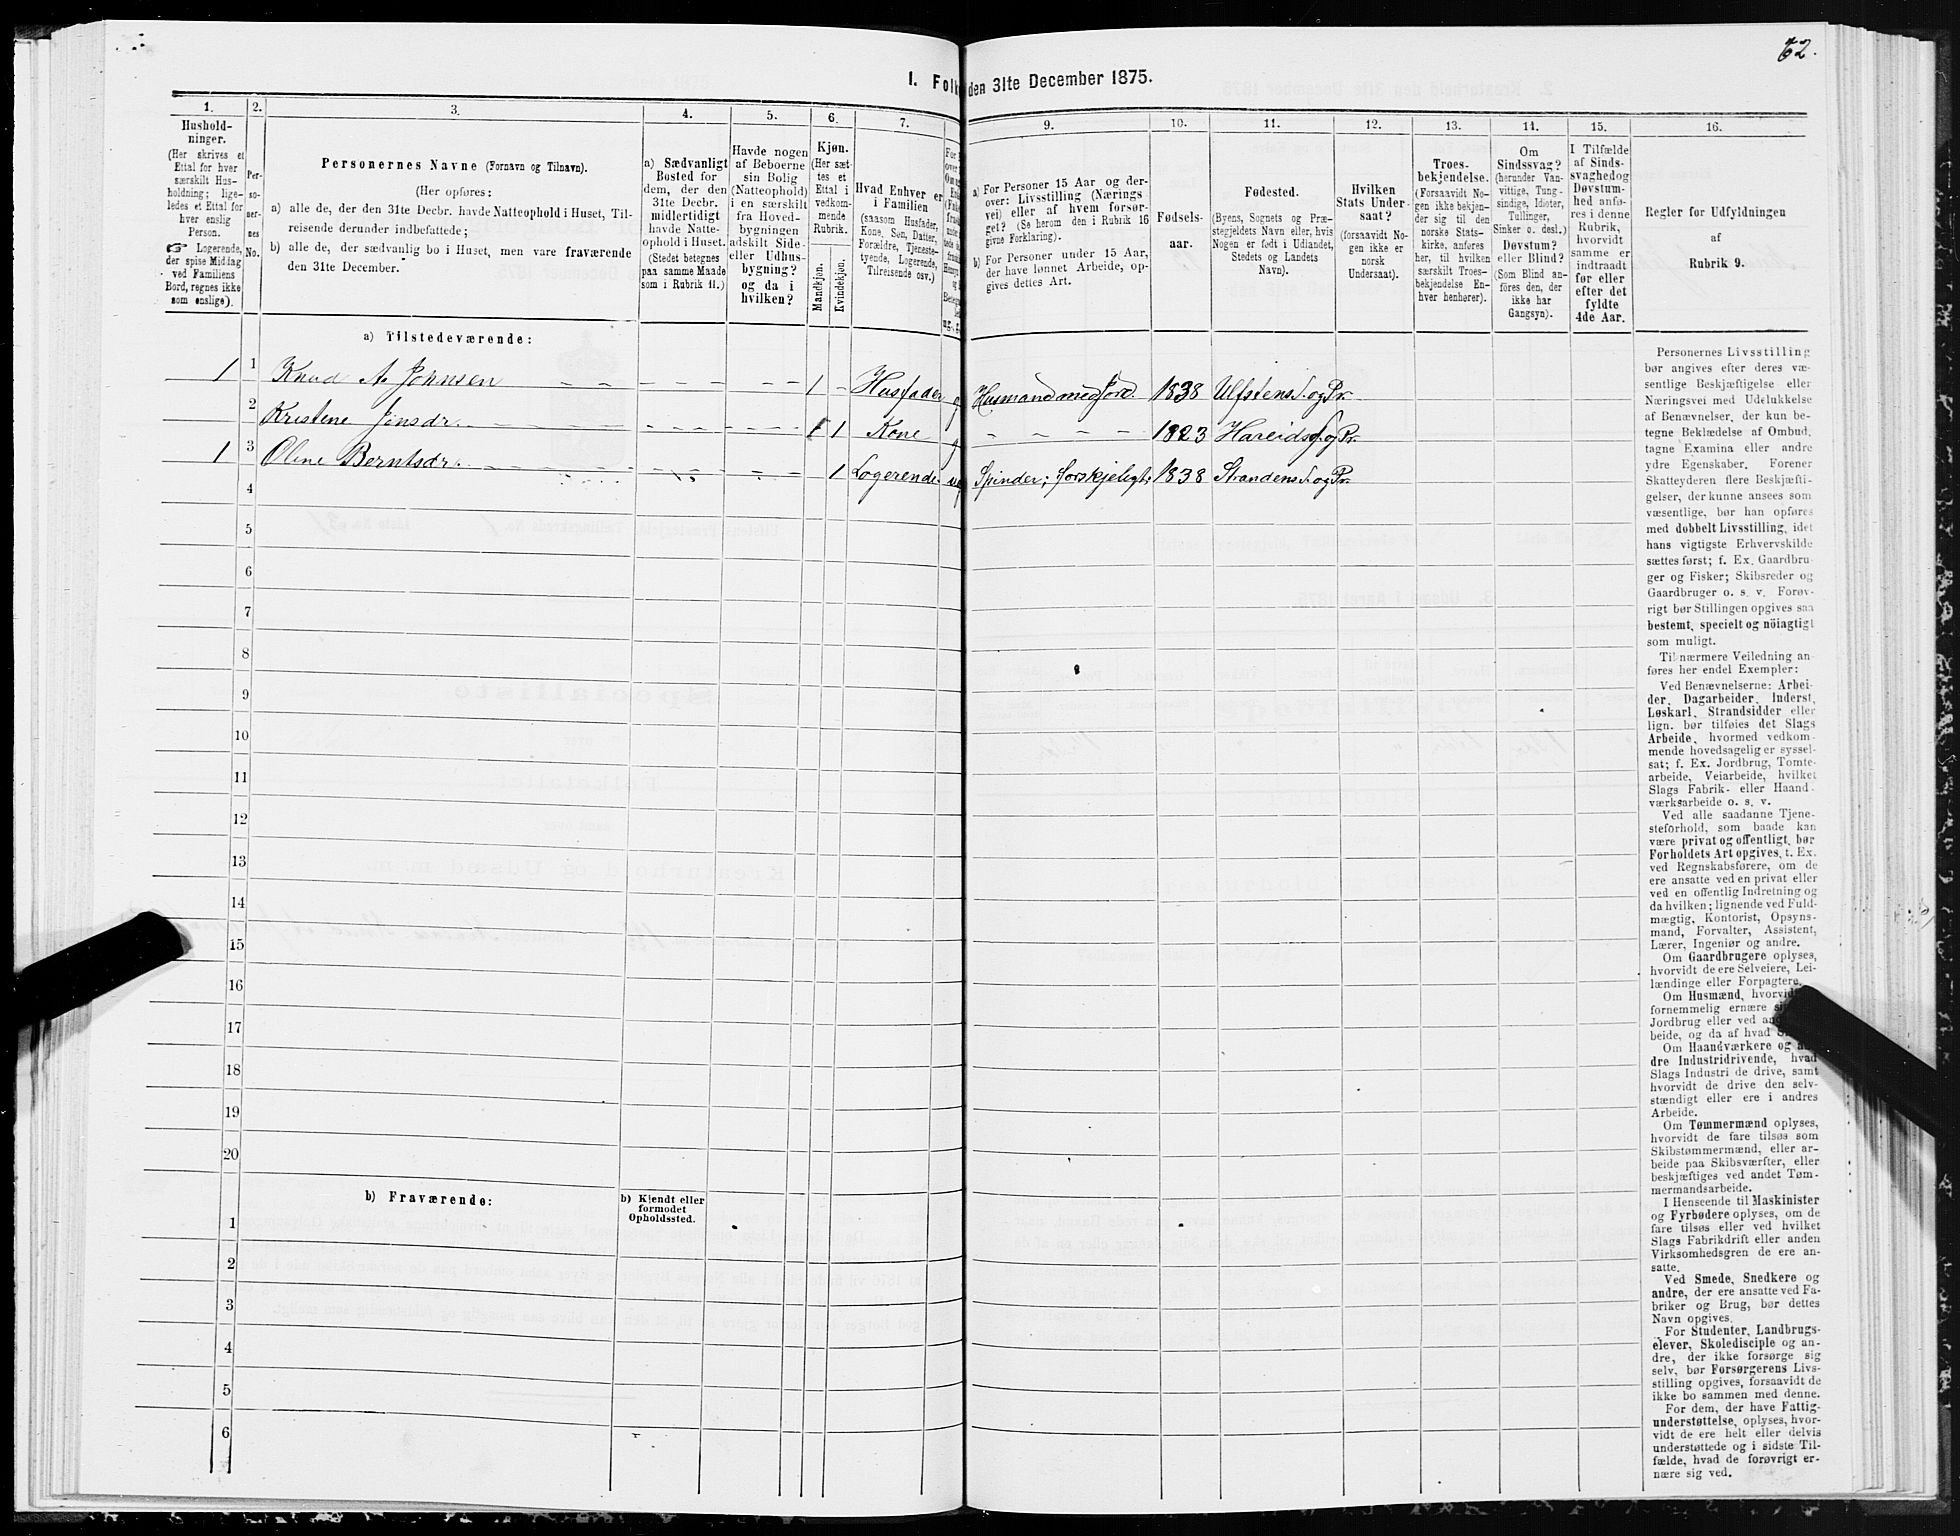 62.
1. Folk den 31te December 1875.
1. 2. 3. 4. 5. 6. 7. 9. 10. 11. 12. 13. 14. 15. 16.
Hushold-
ninger.
(Her skrives et
Ettal for hver
særskilt Hus-
holdning; lige-
ledes et Ettal for
hver enslig
Person.
☞ Logerende,
der spise Middag
ved Familiens
Bord, regnes ikke
som enslige).
Per-
so-
ner-
nes
No.
Personernes Navne (Fornavn og Tilnavn).
(Her opføres:
a) alle de, der den 31te Decbr. havde Natteophold i Huset, Til-
reisende derunder indbefattede;
b) alle de, der sædvanlig bo i Huset, men vare fraværende
den 31te December.
a) Sædvanligt
Bosted for
dem, der den
31te Decbr.
midlertidigt
havde Natte-
ophold i Huset.
(Stedet betegnes
paa samme Maade
som i Rubrik 11.)
Havde nogen
af Beboerne
sin Bolig
(Natteophold)
i en særskilt
fra Hoved-
bygningen
adskilt Side-
eller Udhus-
bygning?
og da i
hvilken?
Kjøn.
(Her sæt-
tes et
Ettal i
vedkom-
mende
Rubrik.
Mandkjøn.
Kvindekjøn.
Hvad Enhver er
i Familien
(saasom Husfader,
Kone, Søn, Datter,
Forældre, Tjeneste-
tyende, Logerende,
Tilreisende osv.)
a) For Personer 15 Aar og der-
over: Livsstilling (Nærings
vei) eller af hvem forsør-
get? (Se herom den i Rubrik 16
givne Forklaring).
b) For Personer under 15 Aar,
der have lønnet Arbeide, op-
gives dettes Art.
Fødsels-
aar.
Fødested.
(Byens, Sognets og Præ-
stegjeldets Navn eller, hvis
Nogen er født i Udlandet,
Stedets og Landets
Navn).
Hvilken
Stats Under-
saat?
(forsaavidt No-
gen ikke er
norsk
Undersaat).
Troes-
bekjendelse.
(Forsaavidt No-
gen ikke bekjen-
der sig til den
norske Stats-
kirke, anføres
her, til hvilken
særskilt Troes-
bekjendelse En-
hver henhører).
Om
Sindssvag?
(herunder Van-
vittige, Tung-
sindige, Idioter,
Tullinger,
Sinker o. desl.)
Døvstum?
eller Blind?
(Som Blind an-
føres den, der
ikke har
Gangsyn).
I Tilfælde
af Sinds-
svaghed og
Døvstum-
hed anfø-
res i denne
Rubrik,
hvorvidt
samme er
indtraadt
før eller
efter det
fyldte
4de Aar.
Regler for Udfyldningen
af
Rubrik 9.
a) Tilstedeværende:
1 1 Knud A. Johnsen 1 Husfader Husmand med Jord. 1838 Ulfstens S. og Pr.
2 Kristene Jonsdr. 1 Kone 1823 Hareids S. og Pr.
1 3 Oline Berntsdr. 1 Logerende Spinder; forskjeligt; 1838 Strandens S. og Pr.
4
5
6
7
8
9
10
11
12
13
14
15
16
17
18
19
20
b) Fraværende:
b) Kjendt eller
formodet
Opholdssted.
1
2
3
4
5
6
Personernes Livsstilling
bør angives efter deres væ-
sentlige Beskjæftigelse eller
Næringsvei med Udelukkelse
af Benævnelser, der kun be-
tegne Beklædelse af Ombud,
tagne Examina eller andre
ydre Egenskaber. Forener
Skatteyderen flere Beskjæfti-
gelser, der kunne ansees som
væsentlige, bør han opføres
med dobbelt Livsstilling, idet
hans vigtigste Erhvervskilde
sættes først; f. Ex. Gaardbru-
ger og Fisker; Skibsreder og
Gaardbruger o. s. v. Forøv-
rigt bør Stillingen opgives saa
bestemt, specielt og nöiagtigt
som muligt.
Til nærmere Veiledning an-
føres her endel Exempler:
Ved Benævnelserne: Arbei-
der, Dagarbeider, Inderst,
Løskarl, Strandsidder eller
lign. bør tilføies det Slags
Arbeide, hvormed vedkom-
mende hovedsagelig er syssel-
sat; f. Ex. Jordbrug, Tomte-
arbeide, Veiarbeide, hvilket
Slags Fabrik- eller Haand-
værksarbeide o. s. v.
Ved alle saadanne Tjene-
steforhold, som baade kan
være privat og offentligt, bør
Forholdets Art opgives, t. Ex.
ved Regnskabsførere, om de
ere ansatte ved en privat eller
ved en offentlig Indretning og
da hvilken; lignende ved Fuld-
mægtig, Kontorist, Opsyns-
mand, Forvalter, Assistent,
Lærer, Ingeniør og andre.
Om Gaardbrugere oplyses,
hvorvidt de ere Selveiere, Lei-
lændinge eller Forpagtere.
Om Husmænd, hvorvidt
fornemmelig ernære
Jordbrug eller ved
beide, og da af hvad
Om Haandværkere og
dre Industridrivende, hvad
Slags Industri de drive, samt
hvorvidt de drive den selv-
stændigt eller ere i andres
Arbeide.
Om Tømmermænd oplyses,
hvorvidt de fare tilsøs som
Skibstømmermænd, eller ar-
beide paa Skibsværfter, eller
beskjæftiges ved andet Tøm-
mermandsarbeide.
I Henseende til Maskinister
og Fyrbødere oplyses, om de
fare tilsøs eller ved hvilket
Slags Fabrikdrift eller anden
Virksomhedsgren de ere an-
satte.
Ved Smede, Snedkere og
andre, der ere ansatte ved Fa-
briker og Brug, bør dettes
Navn opgives.
For Studenter, Landbrugs-
elever, Skoledisciple og an-
dre, der ikke forsørge sig
selv, bør Forsørgerens Livs-
stilling opgives, forsaavidt de
ikke bo sammen med denne.
For dem, der have Fattig-
understøttelse, oplyses, hvor-
vidt de ere helt eller delvis
understøttede og i sidste Til-
fælde, hvad de forøvrigt er-
nære sig ved.